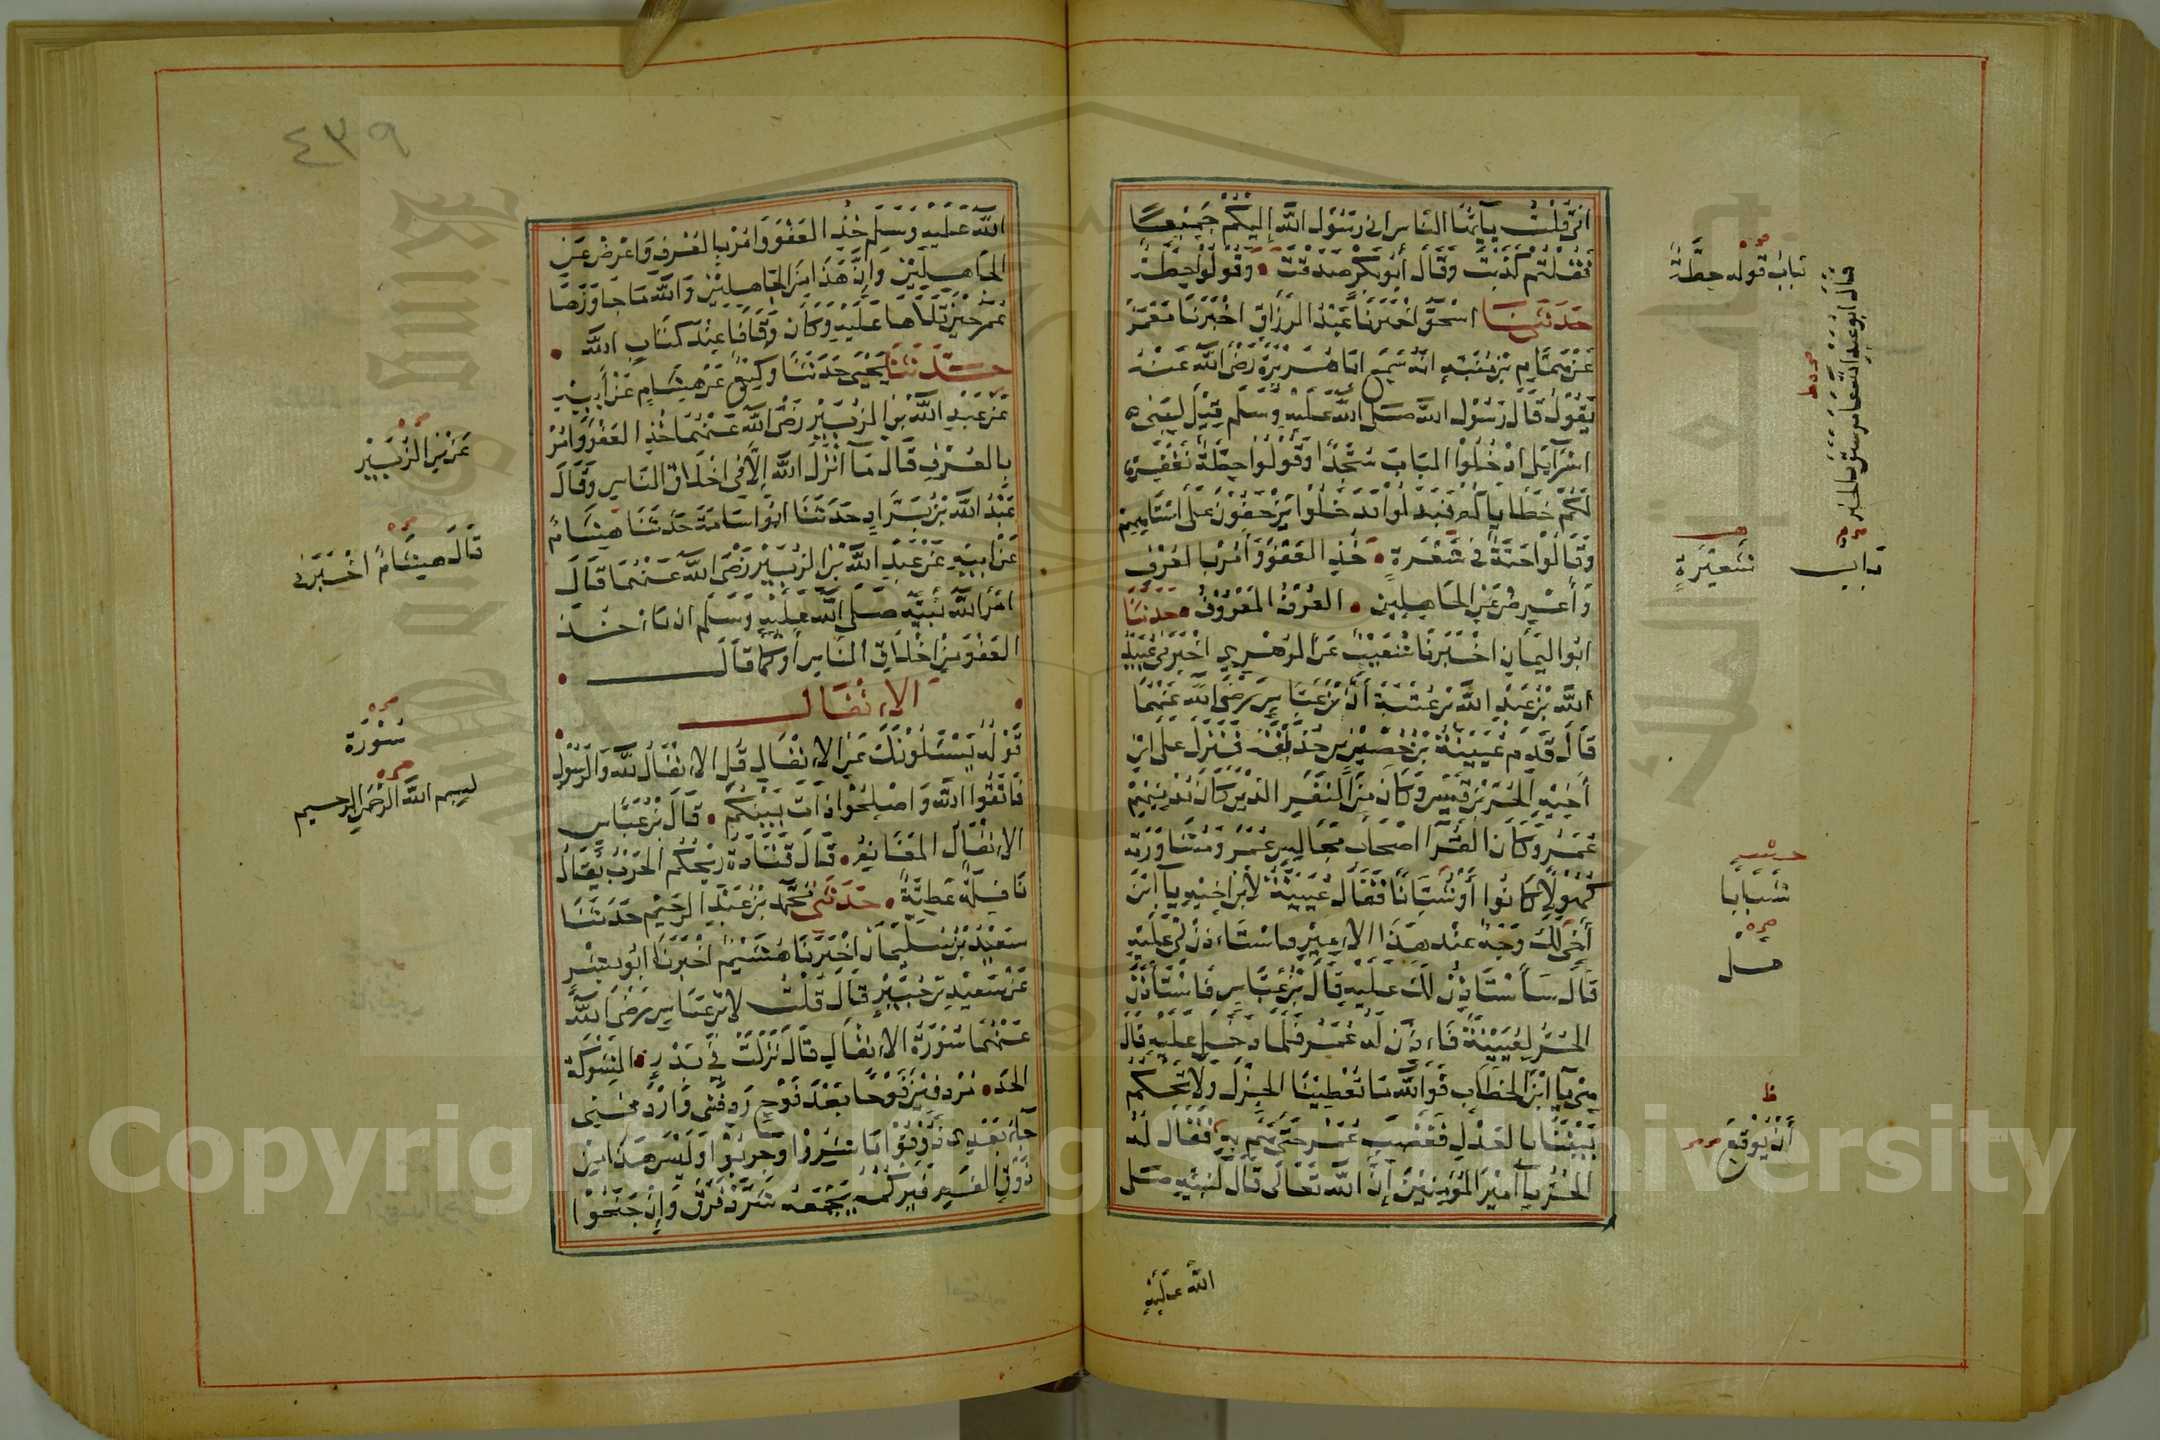 انى قلت يآيها الناس انى رسول الله اليكم جميعا
فقلتم كذبت وقال أبو بكر صدقت • وقولوا حطة
حدثنا اسحق اخبرنا عبد الرزاق اخبرنا معمر
عن همام بن منبه انه سمع ابا هريرة رضى الله عنه
يقول قال رسول الله صلى الله عليه وسلم قيل لبنى
اسرآيل ادخلوا الباب سجدا وقولوا حطة نغفر
لكم خطاياكم فبدلوا فدخلوا يزحفون على استاههم
وقالوا حبة فى شعرة • خذ العفو وأمر بالعرف
وأعرض عن الجاهلين • العرف المعروف • حدثنا
ابو اليمان اخبرنا شعيب عن الزهرى اخبرنى عبيد
الله بن عبد الله بن عتبة أن بن عباس رضى الله عنهما
قال قدم عيينة بن حصين بن حذيفة فنزل على ابن
أخيه الحر بن قيس وكان من النفر الذين كان يدنيهم
عمر وكان القرآ اصحاب مجالس عمر ومشاورته
كهولا كانوا أو شبانا فقال عيينة لابن اخيه يا ابن
أخى لك وجه عند هذا الامير فاستاذن لى عليه
قال سأستاذن لك عليه قال بن عباس فاستأذن
الحر لعيينة فاذن له عمر فلما دخل عليه قال
هى يا ابن الخطاب فو الله ما تعطينا الجزل ولا تحكم
بيننا بالعدل فغضب عمر حتى هم به فقال له
الحر يا أمير المؤمنين إن الله تعالى قال لنبيه صلى
الله عليه
باب قوله حطة
شعيرة
شبابا
هل
أن يوقع
٤٣٩
الله عليه وسلم خذ العفو وامر بالعرف واعرض عن
الجاهلين وإن هذا من الجاهلين والله ما جاوزها
عمر حين تلاها عليه وكان وقافا عند كتاب الله •
حدثنا يحيى حدثنا وكيع عن هشام عن أبيه
عن عبد الله بن الزبير رضى الله عنهما خذ العفو وامر
بالعرف قال ما أنزل الله إلا فى اخلاق الناس وقال
عبد الله بن براد حدثنا ابو اسامة حدثنا هشام
عن ابيه عن عبد الله بن الزبير رضى الله عنهما قال
امر الله نبيه صلى الله عليه وسلم ان ياخذ
العفو من اخلاق الناس أو كما قال
الانفال
قوله يسئلونك عن الانفال قل الانفال لله والرسول
فاتقوا الله واصلحوا ذات بينكم • قال بن عباس
الانفال المغانم • قال قتادة ريحكم الحرب يقال
نافلة عطية • حدثنى محمد بن عبد الرحيم حدثنا
سعيد بن سليمان اخبرنا هشيم أخبرنا ابو بشر
عن سعيد بن جبير قال قلت لابن عباس رضى الله
عنهما سورة الانفال قال نزلت فى بدر • الشوكة
الحد • مردفين فوجا بعد فوج ردفنى واردفنى
جآء بعدى ذوقوا باشروا وجربوا وليس هذا من
ذوق الفم فيركمه يجمعه شرد فرق وإن جنحوا
عن بن الزبير
قال هشام اخبرنى
سورة
بسم الله الرحمن الرحيم